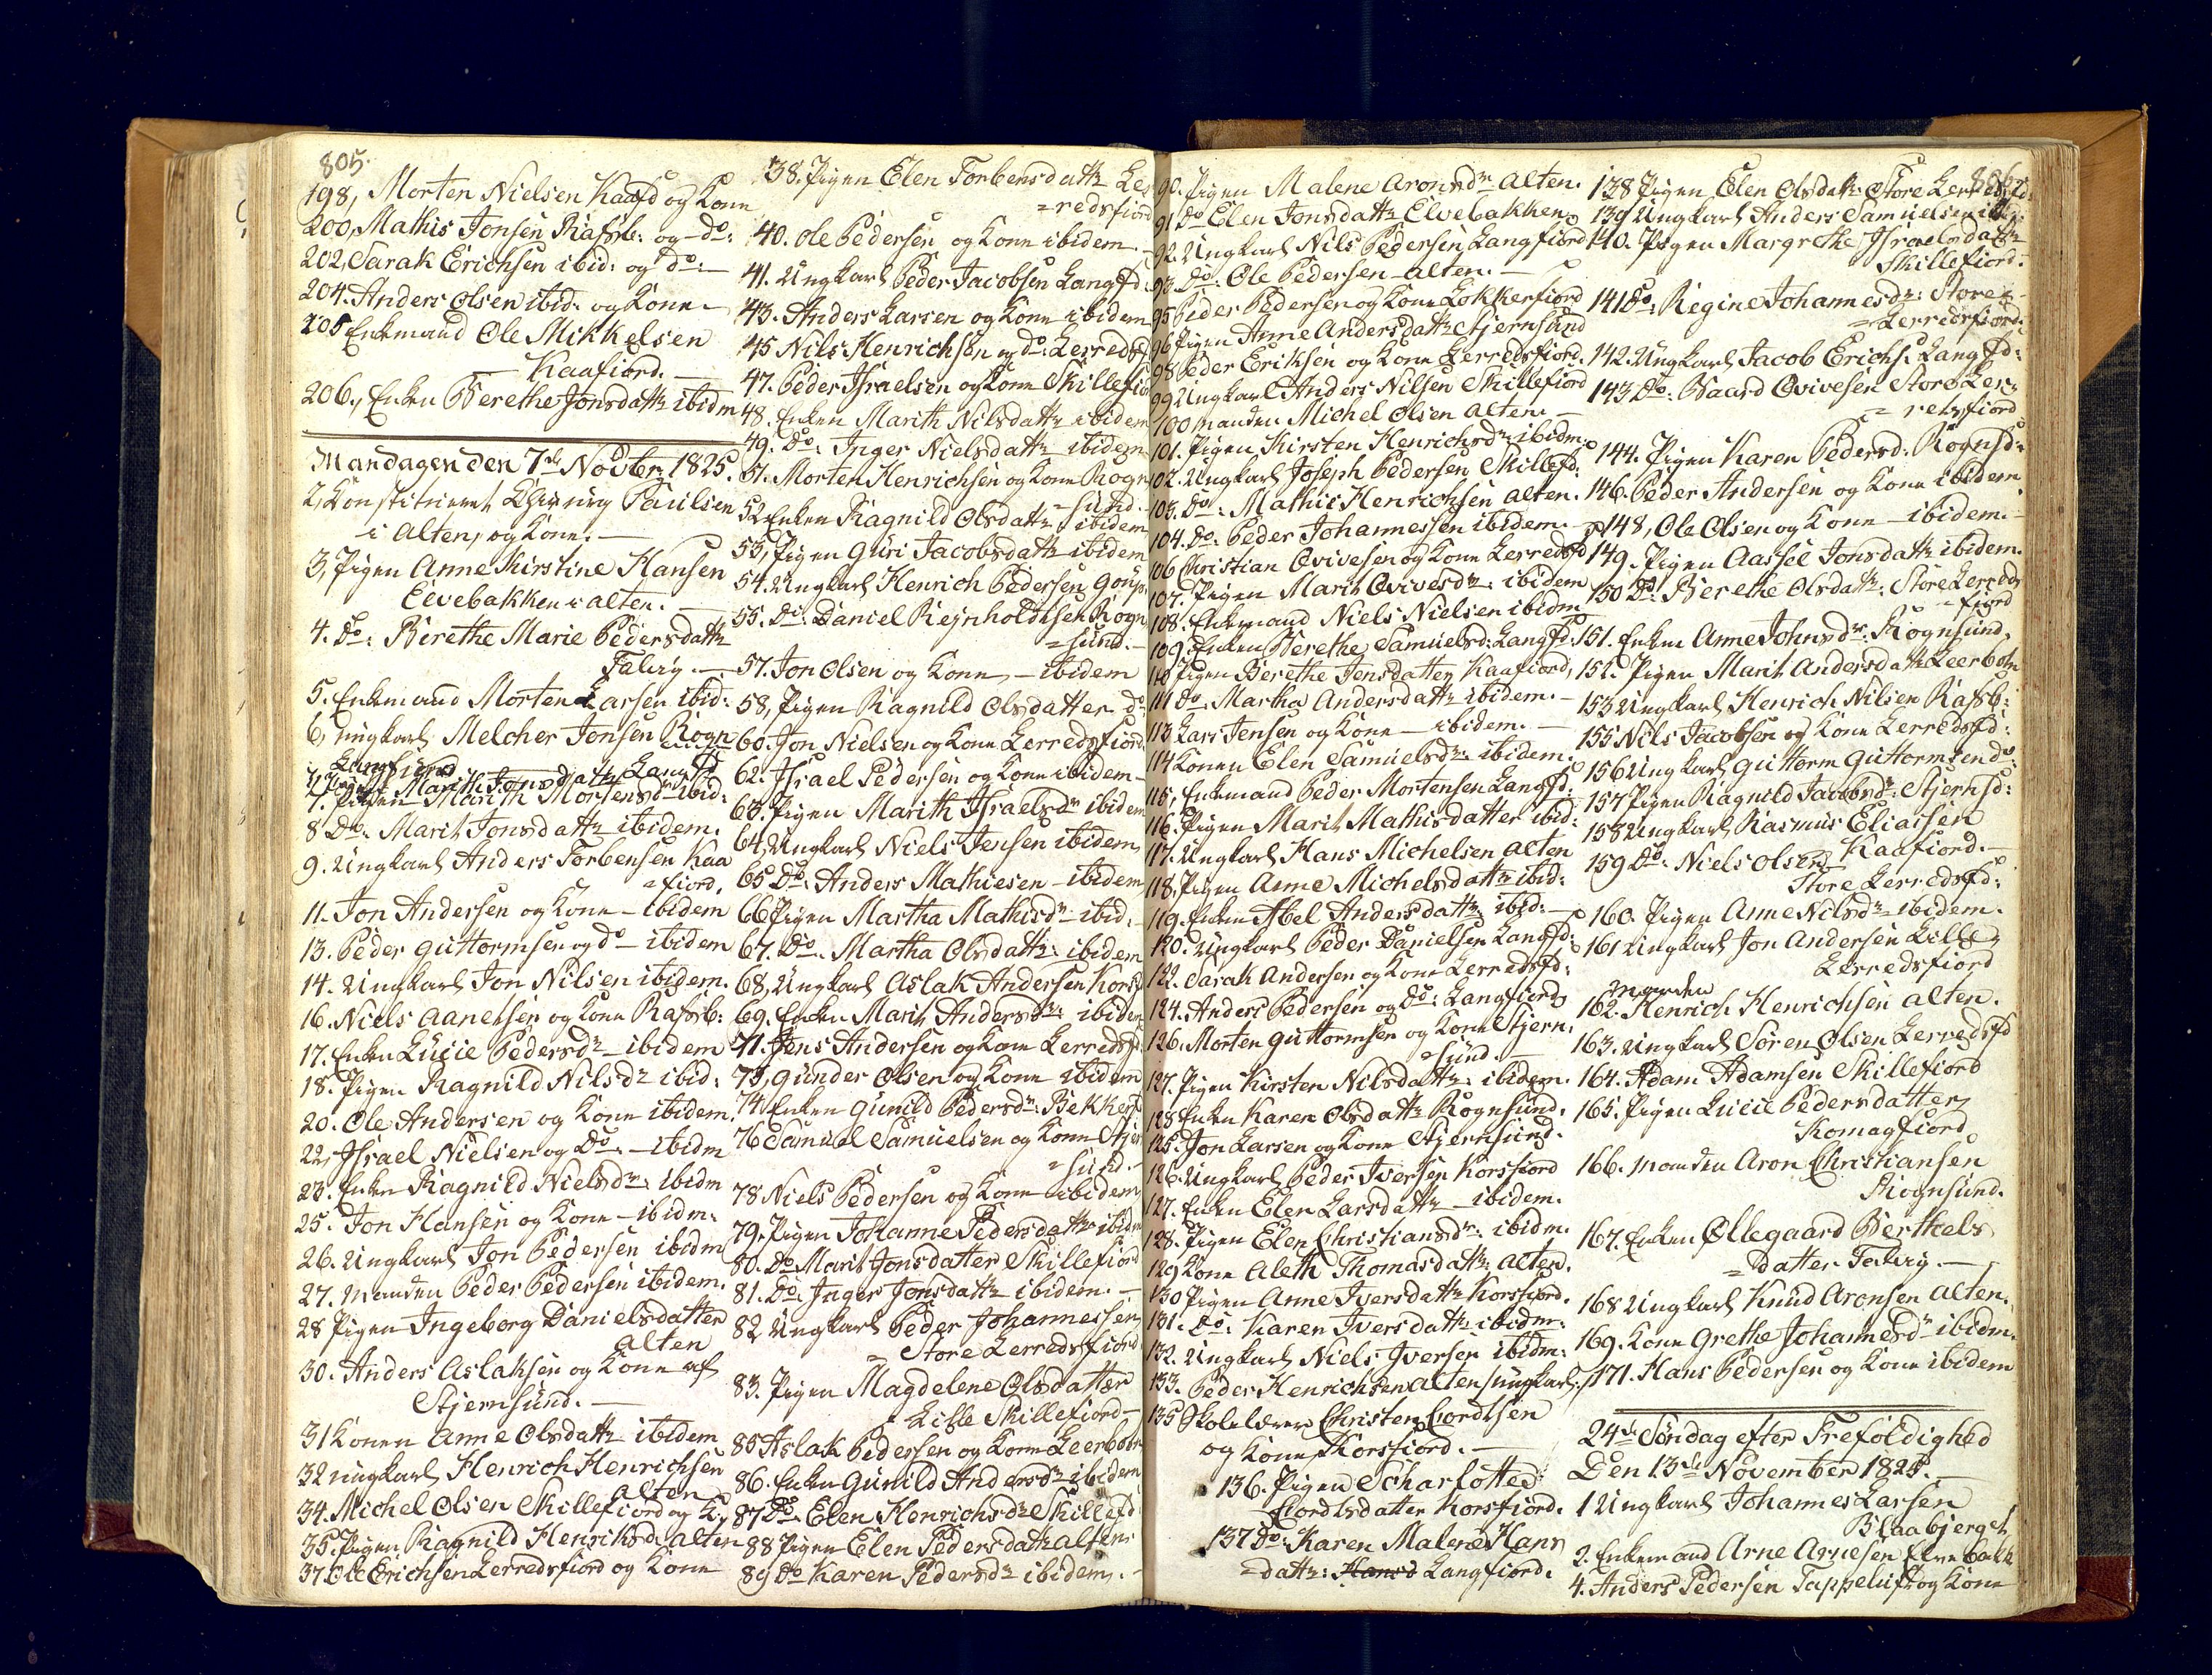 805.
198, Morten Nielsen Kaafd og Kone
200, Mathis Jonsen Rafsb: og do:
202, Sarak Erichsen ibid: og do: —
204. Anders Olsen ibid: og Kone —
205 Enkemand Ole Mikkelsen
Kaafiord. —
206., Enken Berethe Jonsdattr ibidm
Mandagen den 7de Novbr: 1825.
2, Constitueret Paulsen
i Alten, og Kone. —
3, Pigen Anne Kirstine Hansen
Elvebakken i Alten. —
4. Do: Berethe Marie Pedersdattr
Talvig. —
5. Enkemand Morten Larsen ibid:
6, Ungkarl Melcher Jonsen Rogn
Langfiord
7. Pigen Marith Jonsdattr Langfd
7. Pigen Marith Mortensdr ibid:
8 Do: Marit Jonsdattr ibidem.
9. Ungkarl Anders Torbensen Kaa
=fiord.
11. Jon Andersen og Kone — ibidem
13. Peder Guttormsen og do — ibidem
14. Ungkarl Jon Nilsen ibidem.
16. Niels Aanensen og Kone Rafsb:
17. Enken Lucie Pedersdr — ibidem
18. Pigen Ragnild Nilsdr ibid:
20. Ole Andersen og Kone ibidem.
22, Israel Nielsen og Do: — ibidm
23. Enken Ragnild Nielsdr: ibidm
25. Jon Hansen og Kone — ibidm:
26. Ungkarl Jon Pedersen ibidm
27. Manden Peder Pedersen ibidem.
28 Pigen Ingeborg Danielsdatter
Alten
30. Anders Aslaksen og Kone af
Stjernsund. —
31 Konen Anne Olsdattr ibidem
32 Ungkarl Henrich Henrichsen
Alten
34. Michel Olsen Skillefiord og K.
35. Pigen Ragnild Henriksd: Alten
37. Ole Erichsen Lerredsfiord og Kone
38. Pigen Elen Torbensdattr Ler
=redsfiord
40. Ole Pedersen og Kone ibidem. —
41. Ungkarl Peder Jacobsen Langfd:
43. Anders Larsen og Kone ibidem
45 Nils Henrichsen og do: Lerredsfd
47. Peder Israelsen og Kone Skillefior
48. Enken Marith Nilsdattr ibidem
49. Do: Inger Nielsdattr ibidem
51. Morten Henrichsen og Kone Rogn
=sund. —
52 Enken Ragnild Olsdattr ibidem
53, Pigen Guri Jacobsdattr ibidem
54. Ungkarl Henrich Pedersen
55. Do: Daniel Rejnholdtsen Rogn
=sund. —
57. Jon Olsen og Kone — ibidem
58, Pigen Ragnild Olsdatter do
60. Jon Nielsen og Kone Lerredsfiord
62. Israel Pedersen og Kone ibidem —
63. Pigen Marith Israelsdr ibidem
64, Ungkarl Niels Jensen ibidem
65 Do: Anders Mathiesen — ibidem
66 Pigen Martha Mathisdr — ibid.
67. Do. Martha Olsdattr: ibidem
68, Ungkarl Aslak Andersen Korsf
69. Enken Marit Andersdr: ibidem
71. Jens Andersen og Kone Lerredsfd
73, Gunder Olsen og Kone ibidem
74 Enken Gunild Pedersdr: Bekkerf
76 Samuel Samuelsen og Kone Stjer
=sund. —
78 Niels Pedersen og Kone ibidem
79. Pigen Johanne Pedersdattr ibidm
80. Do Marit Jonsdatter Skillefiord
81. Do: Inger Jonsdattr ibidem. —
82 Ungkarl Peder Johannessen
= Store Lerredsfiord
83. Pigen Magdelene Olsdatter
Lille Skillefiord —
85 Aslak Pedersen og Kone Leerbotn
86. Enken Gunild Andersdr ibidem
87 Do. Elen Henrichsdr Skillefd
88 Pigen Elen Pedersdattr Alten
89 Do Karen Pedersdr ibidem. —
90. Pigen Malene Aronsdr Alten.
91 do Elen Jonsdattr Elvebakken
92. Ungkarl Nils Pedersen Langfiord
93. Do: Ole Pedersen Alten. —
95 Peder Pedersen og Kone Lokkerfiord
96 Pigen Anne Andersdattr Stjernsund
98 Peder Eriksen og Kone Lerredsfiord.
99 Ungkarl Anders Nilsen Skillefiord
100 Manden Michel Olsen Alten. —
101. Pigen Kirsten Henrichsdr ibidm.
102. Ungkarl Joseph Pedersen Skillefd:
103. Do: Mathis Henrichsen Alten.
104. Do: Peder Johannessen ibidem. —
106 Christian Qvivesen og Kone Lerredsfd
107. Pigen Marit Qvivesdr: ibidem
108. Enkemand Niels Nielsen ibidm
109. Enken Berethe Samuelsd: Langfd:
110 Pigen Berethe Jensdatter Kaafiord,
111 do. Martha Andersdattr ibidem. —
113 Lars Jensen og Kone — ibidem. —
114 Konen Elen Samuelsdr: ibidem.
115, Enkemand Peder Mortensen Langfd:
116. Pigen Marit Mathisdatter ibid:
117. Ungkarl Hans Michelsen Alten
118, Pigen Anne Michelsdattr ibid:
119. Enken Abel Andersdattr: ibid: —
120. Ungkarl Peder Danielsen Langfd:
122. Sarak Andersen og Kone Lerredsfd:
124. Anders Pedersen og Do: Langfiord
126. Morten Guttormsen og Kone Stjern:
=sund. —
127. Pigen Kirsten Nilsdattr: ibidem.
128 Enken Karen Olsdattr Rognsund.
125. Jon Larsen og Kone Stjernsund.
126. Ungkarl Peder Iversen Korsfiord
127. Enken Elen Larsdattr — ibidem.
128. Pigen Elen Christiansdr: ibidm.
129 Kone Aleth Thomasdattr: Alten.
130 Pigen Anne Iversdattr Korsfiord.
131. Do: Karen Iversdattr ibidm:
132. Ungkarl Niels Iversen ibidm:
133. Peder Henrichsen Alten /ungkarl:/
135 Skolelærer Christen Cordtsen
og Kone, Korsfiord. —
136. Pigen Scharlotte
Cordtsdatter Korsfiord.
137 Do: Karen Malene Hans
=dattr: Hansd Langfiord.
806
138 Pigen Elen Olsdattr Store Lerredsfd:
139 Ungkarl Anders Samuelsen
140. Pigen Margrethe Israelsdattr
Skillefiord.
141 Do: Regine Johannesdr: Store
=Lerredsfiord.
142. Ungkarl Jacob Erichs: Langfd:
143 Do: Baard Qvivesen Store Ler=
=retsfiord
144. Pigen Karen Pedersd: Rognsd=
146. Peder Andersen og Kone ibidem
148, Ole Olsen og Kone — ibidem.
149. Pigen Aassel Jonsdattr ibidem.
150 Do: Berethe Olsdattr: Store Lerreds
=fiord
151. Enken Anne Johnsdr: Rognsund.
152. Pigen Marit Andersdattr Leerbotn
153 Ungkarl Henrich Nilsen Rafsb:
155 Nils Jacobsen og Kone Lerredsfd:
156 Ungkarl Guttorm Guttormsen do:
157 Pigen Ragnild Jacobsdr: Stjernsd:
158 Ungkarl Rasmus Eliassen
Kaafiord. —
159 Do: Niels Olsen
Store Lerredsfd:
160. Pigen Anne Nilsdr — ibidem.
161 Ungkarl Jon Andersen Lille
Lerredsfiord
Manden
162. Henrich Henrichsen Alten.
163. Ungkarl Sören Olsen Lerredsfd
164. Adam Adamsen Skillefiord
165. Pigen Lucie Pedersdatter
Komagfiord
166. Manden Aron Christiansen
Rognsund.
167. Enken Øllegaard Berthels
=datter Talvig. —
168 Ungkarl Knud Aronsen Alten.
169. Kone Grethe Johannesdr ibidm.
171. Hans Pedersen og Kone ibidem
24de Söndag efter Trefoldighed
Den 13de November 1825. —
1 Ungkarl Johannes Larsen
Blaabjerget
2. Enkemand Arne Arnesen Elvebakk
4. Anders Pedersen Tappeluft og Kone